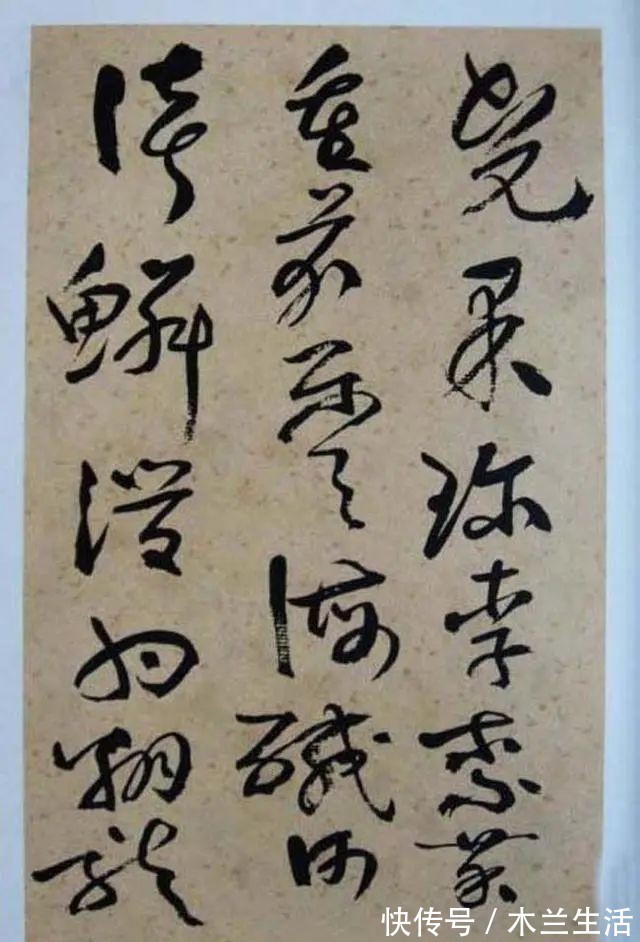 光果珍李柰菜
重芥薑海醎河
淡鱗潛羽翔龍
快传号/木兰生活